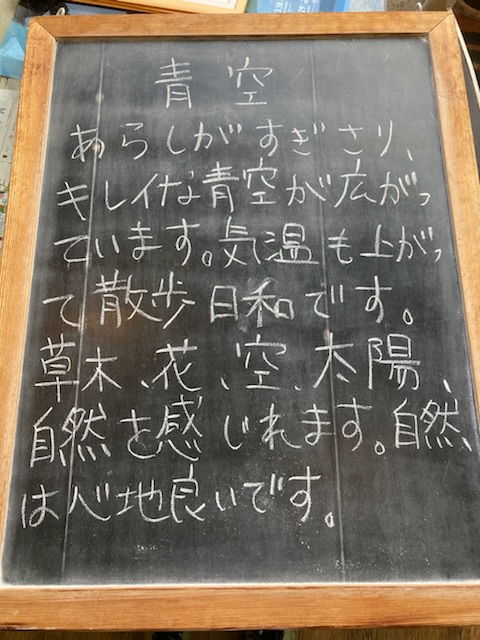 青空
あらしがすぎさり、
キレイな青空が広がっ
ています。気温も上がっ
て散歩日和です。
草木、花、空、太陽、
自然を感じれます。自然、
は心地良いです。